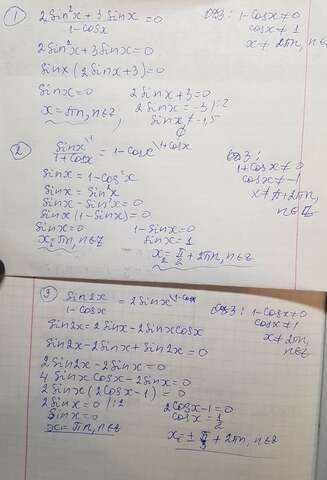 1) (2sin²x + 3sinx)/(1-cosx) = 0
ОДЗ: 1-cosx≠0
cosx≠1
x≠2πn, n∈Z
2sin²x + 3sinx = 0
sinx (2sinx+3) = 0
sinx = 0
2sinx + 3 = 0
2sinx = -3 |:2
x = πn, n∈Z,
sinx ≠ -1,5
∅
2) sinx\¹/(1+cosx) = 1-cosx\1+cosx
ОДЗ:
1+cosx≠0
cosx≠-1
x≠π+2πn,
n∈Z
sinx = 1-cos²x
sinx = sin²x
sinx - sin²x = 0
sinx (1-sinx) = 0
sinx = 0
1-sinx = 0
x₁ = πn, n∈Z
sinx = 1
x₂ = π/2 + 2πn, n∈Z
3) sin2x/(1-cosx) = 2sinx\1-cosx
ОДЗ: 1-cosx≠0
cosx≠1
x≠2πn,
n∈Z
sin2x = 2sinx - 2sinxcosx
sin2x - 2sinx + sin2x = 0
2sin2x - 2sinx = 0
4sinxcosx - 2sinx = 0
2sinx (2cosx-1) = 0
2sinx = 0 |:2
2cosx-1 = 0
sinx = 0
cosx = 1/2
x = πn, n∈Z
x = ± π/3 + 2πn, n∈Z